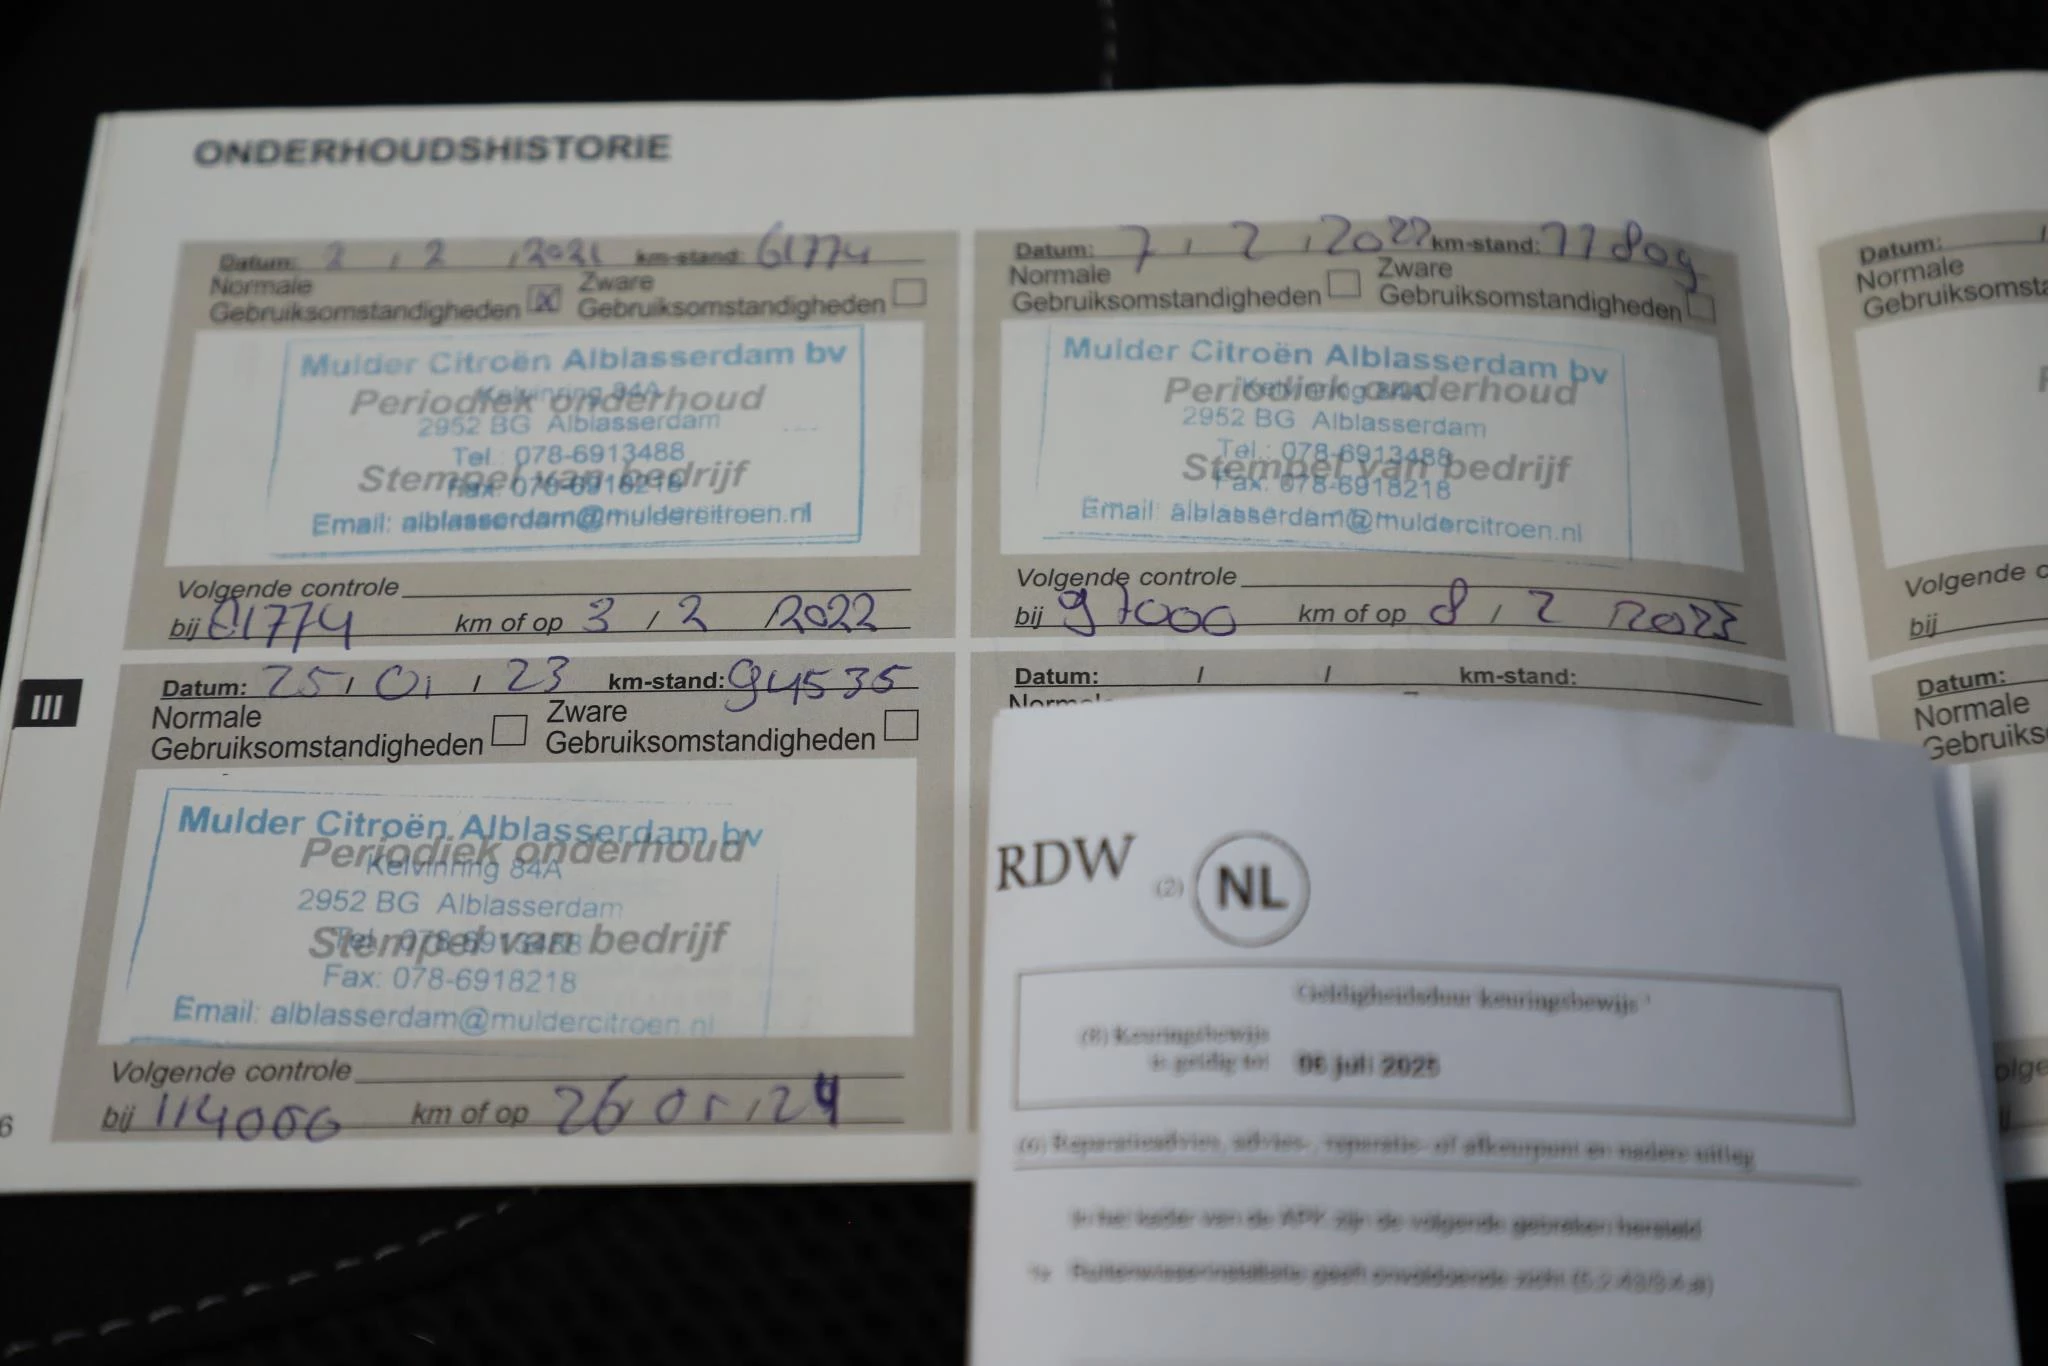 ONDERHOUDSHISTORIE
Datum: 2 / 2 / 2021 km-stand: 61774
Normale Gebruiksomstandigheden ☒ Zware Gebruiksomstandigheden ☐
Mulder Citroën Alblasserdam bv
Periodiek onderhoud
Kelvinring 84A
2952 BG Alblasserdam
Tel.: 078-6913488
Stempel van bedrijf
Fax: 078-6918218
Email: alblasserdam@muldercitroen.nl
Volgende controle
bij 81774 km of op 3 / 2 / 2022
Datum: 7 / 2 / 2022 km-stand: 77809
Normale Gebruiksomstandigheden ☐ Zware Gebruiksomstandigheden ☐
Mulder Citroën Alblasserdam bv
Periodiek onderhoud
Kelvinring 84A
2952 BG Alblasserdam
Tel.: 078-6913488
Stempel van bedrijf
Fax: 078-6918218
Email: alblasserdam@muldercitroen.nl
Volgende controle
bij 97000 km of op 8 / 2 / 2023
III
Datum: 25 / 01 / 23 km-stand: 94535
Normale Gebruiksomstandigheden ☐ Zware Gebruiksomstandigheden ☐
Mulder Citroën Alblasserdam bv
Periodiek onderhoud
Kelvinring 84A
2952 BG Alblasserdam
Tel.: 078-6913488
Stempel van bedrijf
Fax: 078-6918218
Email: alblasserdam@muldercitroen.nl
Volgende controle
bij 114000 km of op 26 / 01 / 24
6
Datum: / / km-stand:
Datum: /
Normale
Volgende
bij
Datum:
Normale
RDW (2) NL
Geldigheidsduur keuringsbewijs
(8) Keuringsbewijs
is geldig tot 06 juli 2025
(6) Reparatieadvies, advies-, reparatie- of afkeurpunt en nadere uitleg
In het kader van de APK zijn de volgende gebreken hersteld
Ruitenwisserinstallatie geeft onvoldoende zicht